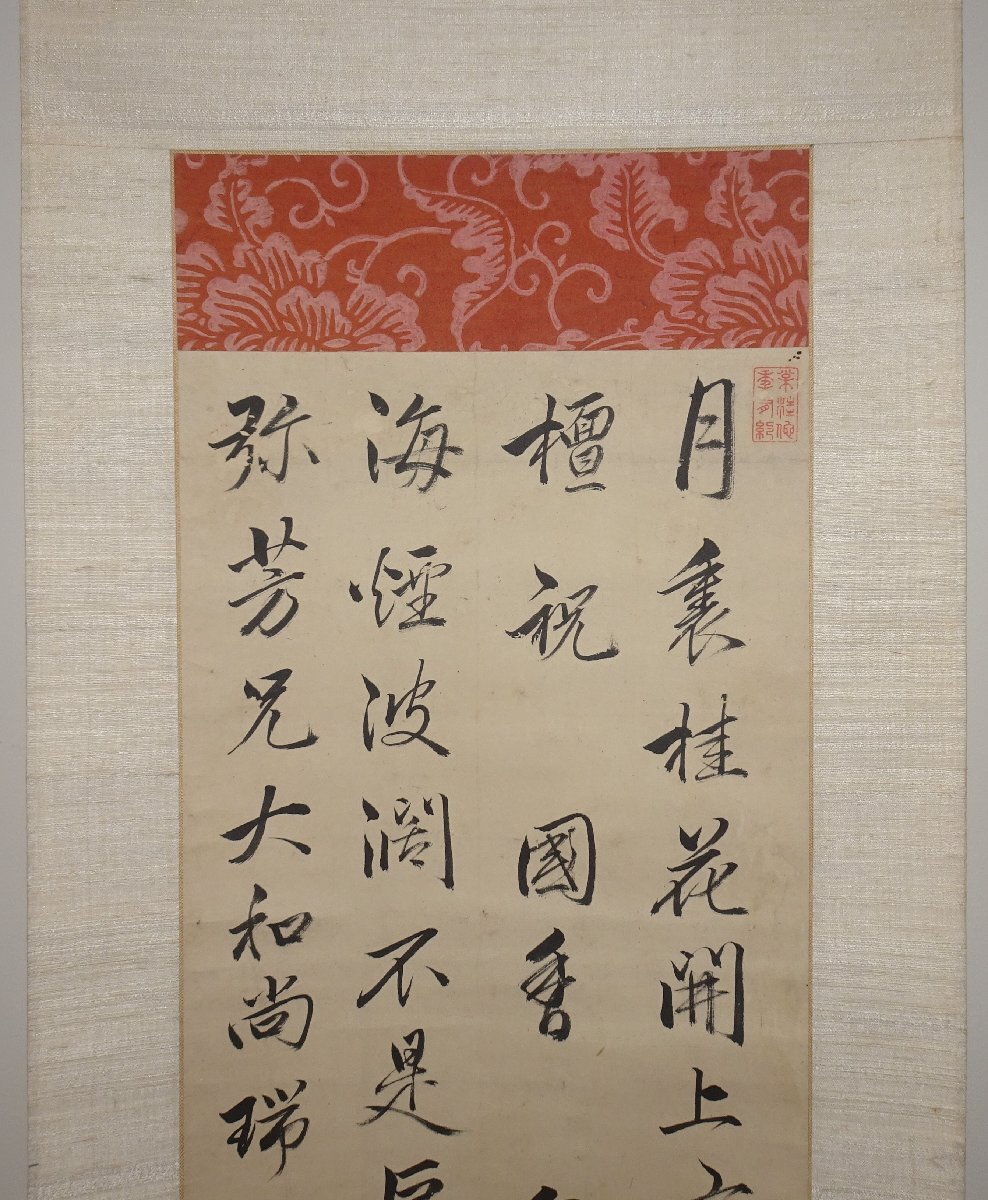 月裏桂花開上
檀祝國香
海煙波濶不是
弥芳兄大和尚瑞